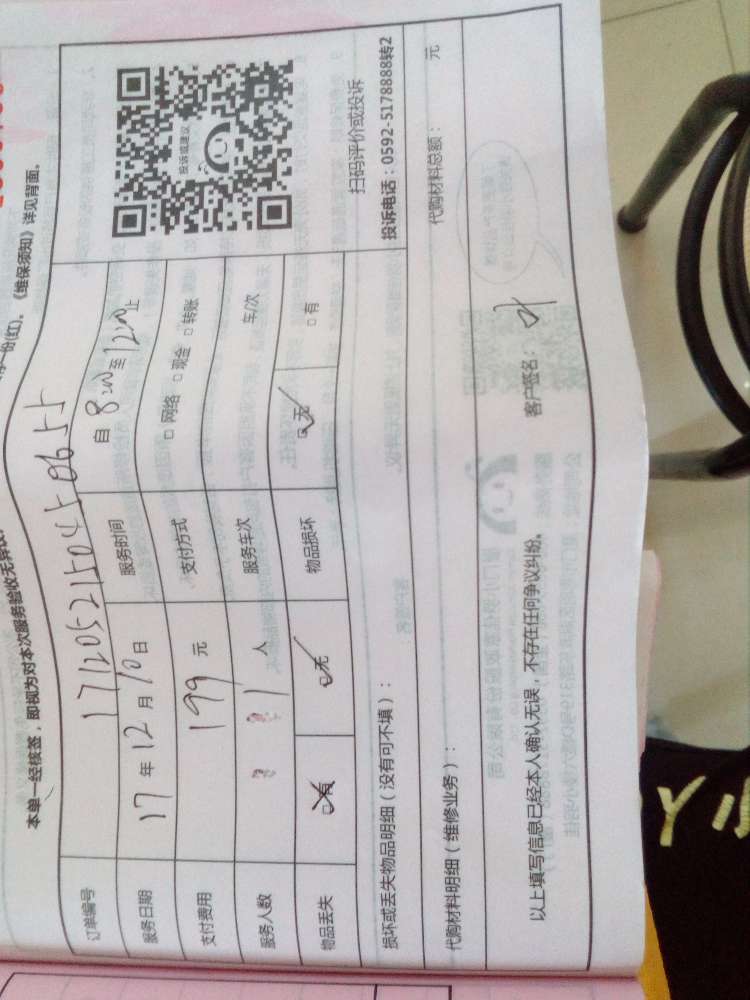 份(红)。《维保须知》详见背面。
本单一经核签，即视为对本次服务验收无异议
订单编号
服务日期 17 年 12 月 10 日 服务时间 自 8:00 至 12:00 止
支付费用 199 元 支付方式 □ 网络 □ 现金 □ 转账
服务人数 1 人 服务车次 车/次
物品丢失 □ 有 □ 无 物品损坏 □ 无 □ 有
投诉或建议
扫码评价或投诉
投诉电话：0592-5178888转2
损坏或丢失物品明细（没有可不填）：
代购材料明细（维修业务）： 代购材料总额： 元
以上填写信息已经本人确认无误，不存在任何争议纠纷。 客户签名：